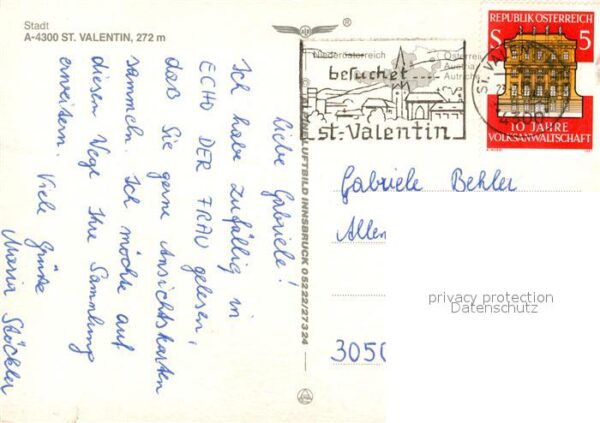 Stadt
A-4300 ST. VALENTIN, 272 m
®
Niederösterreich
Österreich
Austria
Autriche
besuchet....
st-Valentin
ST. VALENTIN
4300
REPUBLIK ÖSTERREICH
S 5
10 JAHRE
VOLKSANWALTSCHAFT
LUFTBILD INNSBRUCK 05222/27324
Liebe Gabriele!
Ich habe zufällig in
ECHO DER FRAU gelesen,
daß Sie gerne Ansichtskarten
sammeln. Ich möchte auf
diesem Wege Ihre Sammlung
erweitern. Viele Grüße
Maria Stöckler
Gabriele Behler
Allen
305
privacy protection
Datenschutz